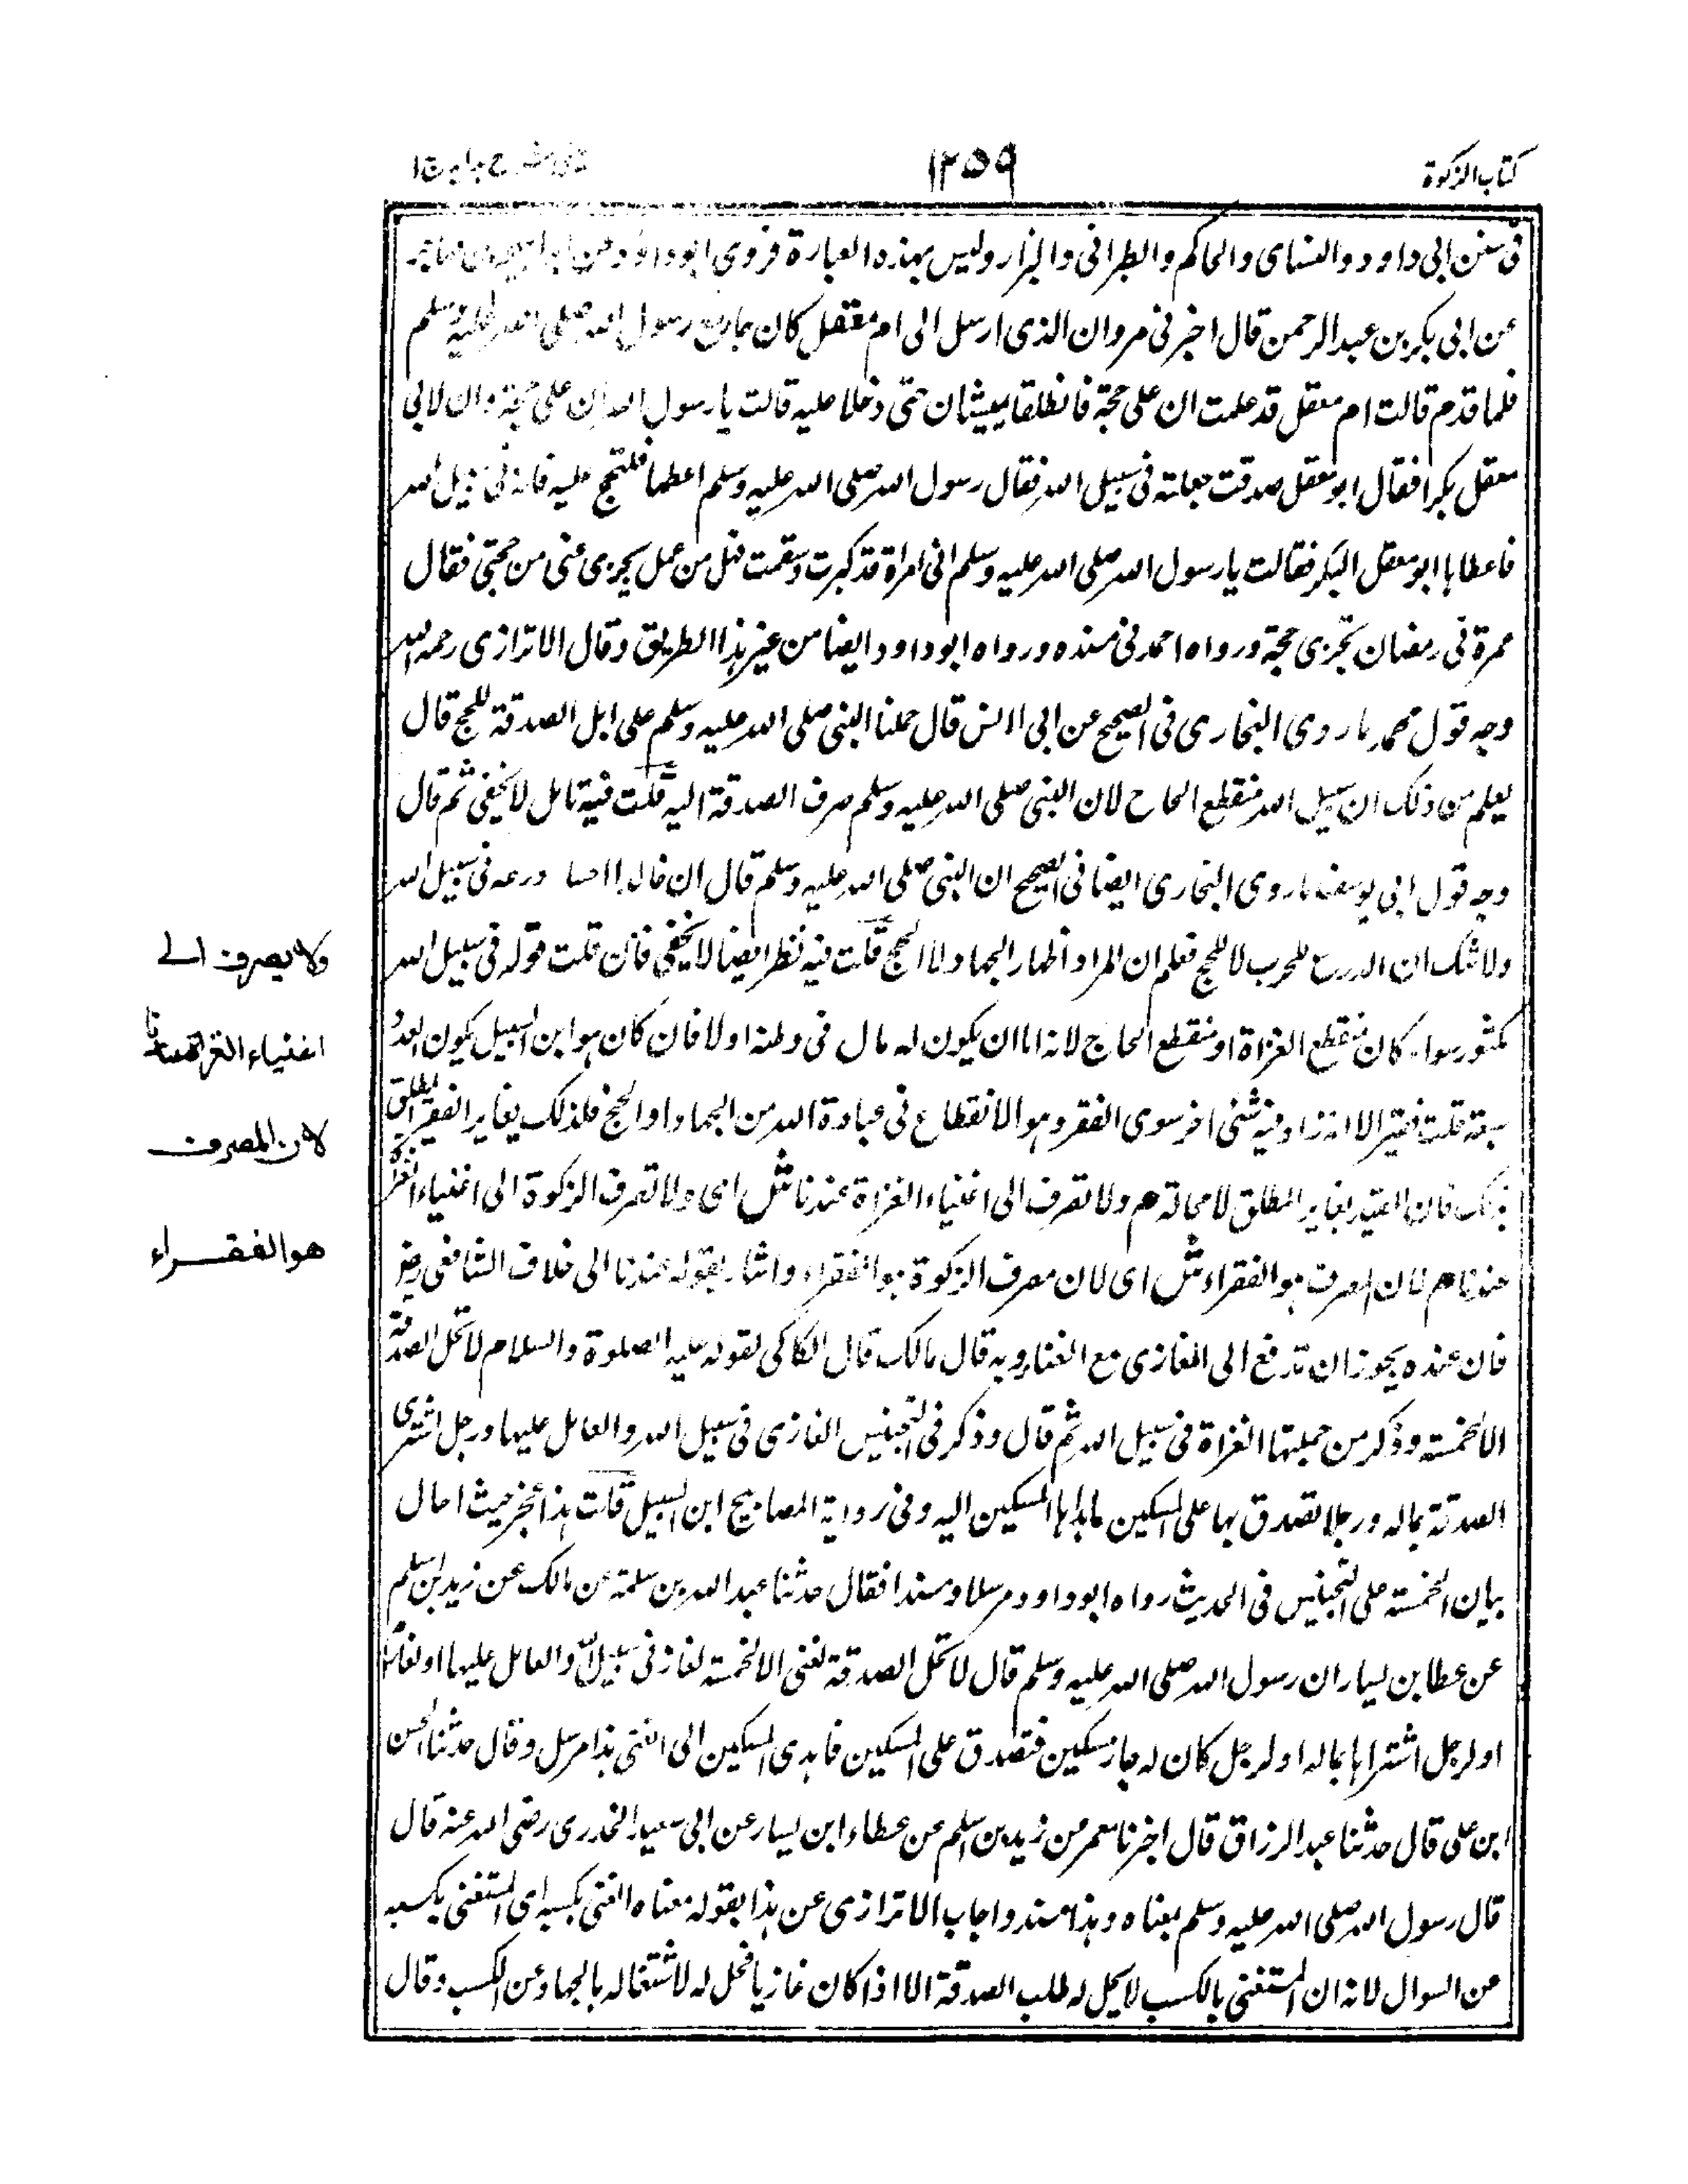 كتاب الزكوة
۱۲۵۹
فى سنن ابى داود والنساى والحاكم والطبرانى والبزار وليس بهذه العبارة فروى ابوداود عن
عن ابى بكر بن عبد الرحمن قال اخبرنى مروان الذى ارسل الى ام معقل كان رسول الله صلى الله عليه وسلم
فلما قدم قالت ام معقل قد علمت ان على حجة فانطلقا يمشيان حتى دخلا عليه قالت يا رسول الله ان على حجة وان لابى
معقل بكرا فقال ابو معقل صدقت جعلته فى سبيل الله فقال رسول الله صلى الله عليه وسلم اعطها فلتحج عليه فانه فى سبيل الله
فاعطاها ابو معقل البكر فقالت يا رسول الله صلى الله عليه وسلم انى امراة قد كبرت وسقمت فهل من عمل يجزى عنى من حجتى فقال
عمرة فى رمضان تجزى حجة ورواه احمد فى مسنده ورواه ابو داود ايضا من غير هذا الطريق وقال الاترازى رحمه الله
وجه قول محمد ما روى البخارى فى الصحيح عن ابى الاس قال حملنا النبى صلى الله عليه وسلم على ابل الصدقة للحج قال
يعلم من ذلك ان سبيل الله منقطع الحاج لان النبى صلى الله عليه وسلم صرف الصدقة اليه قلت فيه تامل لا يخفى ثم قال
وجه قول ابى يوسف ما روى البخارى ايضا فى الصحيح ان النبى صلى الله عليه وسلم قال ان خالدا درعه فى سبيل الله
ولا شك ان الدرع للحرب لا للحج فعلم ان المراد اظهار الجهاد لا الحج قلت فيه نظر ايضا لا يخفى فان قلت قوله فى سبيل الله
مكثور سواء كان منقطع الغزاة او منقطع الحاج لانه اما ان يكون له مال فى وطنه اولا فان كان هو ابن السبيل يكون العدد
سبعة قلت فقير الا انه زاد فيه شئ اخر سوى الفقر وهو الانقطاع فى عبادة الله من الجهاد او الحج فلذلك يغاير الفقير المطلق
فان المقيد يغاير المطلق لا محالة م ولا تصرف الى اغنياء الغزاة عندنا ش اى ولا تصرف الزكوة الى اغنياء الغزاة
عندنا م لان المصرف هو الفقراء ش اى لان مصرف الزكوة هو الفقراء واشار بقوله عندنا الى خلاف الشافعى رض
فان عنده يجوز ان تدفع الى الغازى مع الغناء وبه قال مالك قال الكاكى لقوله عليه الصلوة والسلام لا تحل الصدقة
الا لخمسة وذكر من جملتها الغزاة فى سبيل الله ثم قال وذكر فى التجنيس الغازى فى سبيل الله والعامل عليها ورجل اشترى
الصدقة بماله ورجلا تصدق بها على المسكين فاهداها المسكين اليه وفى رواية المصابيح ابن السبيل قلت هذا عجز حيث احال
بيان الخمسة على التجنيس فى الحديث رواه ابو داود مرسلا ومسندا فقال حدثنا عبد الله بن سلمة عن مالك عن زيد بن اسلم
عن عطا بن يسار ان رسول الله صلى الله عليه وسلم قال لا تحل الصدقة لغنى الا لخمسة لغاز فى سبيل الله والعامل عليها او لغارم
او لرجل اشتراها بماله او لرجل كان له جار مسكين فتصدق على المسكين فاهدى المسكين الى الغنى هذا مرسل وقال حدثنا الحسن
ابن على قال حدثنا عبد الرزاق قال اخبرنا معمر من زيد بن اسلم عن عطاء ابن يسار عن ابى سعيد الخدرى رضى الله عنه قال
قال رسول الله صلى الله عليه وسلم بمعناه وهذا مسند واجاب الاترازى عن هذا بقوله معناه الغنى بكسبه اى المستغنى بكسبه
عن السوال لانه ان المستغنى بالكسب لا يحل له طلب الصدقة الا اذا كان غازيا فحل له لاشتغاله بالجهاد عن الكسب وقال
ولا يصرف الے
اغنياء الغزاة عندنا
لان المصرف
هو الفقراء